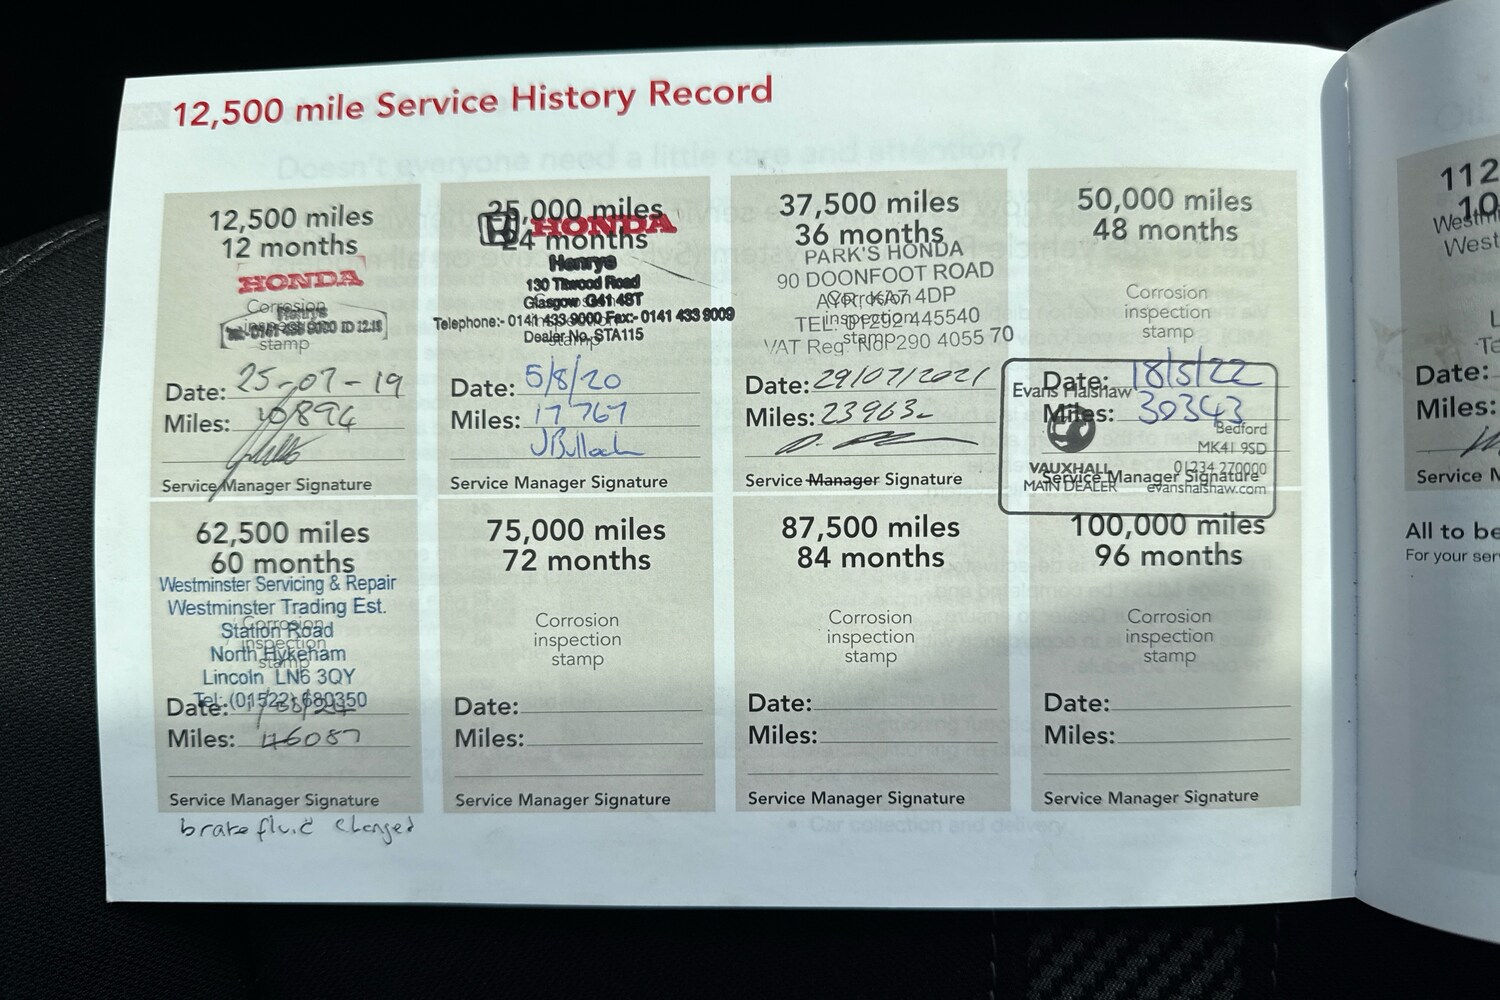 12,500 mile Service History Record
12,500 miles
12 months
HONDA
Corrosion
inspection
stamp
Henrys
Date: 25-07-19
Miles: 10894
Service Manager Signature
25,000 miles
24 months
HONDA
Henrys
130 Titwood Road
Glasgow G41 4ST
Telephone:- 0141 433 9000 Fax:- 0141 433 9009
Dealer No. STA115
inspection
stamp
Date: 5/8/20
Miles: 17767
JBulloch
Service Manager Signature
37,500 miles
36 months
PARK'S HONDA
90 DOONFOOT ROAD
AYR. KA7 4DP
TEL. 01292 445540
VAT Reg. No. 290 4055 70
Corrosion
inspection
stamp
Date: 29/07/2021
Miles: 23963
Service Manager Signature
50,000 miles
48 months
Corrosion
inspection
stamp
Date: 18/5/22
Miles: 30343
Evans Halshaw
Bedford
MK41 9SD
VAUXHALL
MAIN DEALER
01234 270000
evanshalshaw.com
Service Manager Signature
62,500 miles
60 months
Westminster Servicing & Repair
Westminster Trading Est.
Station Road
North Hykeham
Lincoln LN6 3QY
Tel: (01522) 680350
Corrosion
inspection
stamp
Date:
Miles: 46087
Service Manager Signature
brake fluid changed
75,000 miles
72 months
Corrosion
inspection
stamp
Date:
Miles:
Service Manager Signature
87,500 miles
84 months
Corrosion
inspection
stamp
Date:
Miles:
Service Manager Signature
100,000 miles
96 months
Corrosion
inspection
stamp
Date:
Miles:
Service Manager Signature
112
10
West
Date:
Miles:
Service M
All to be
For your ser